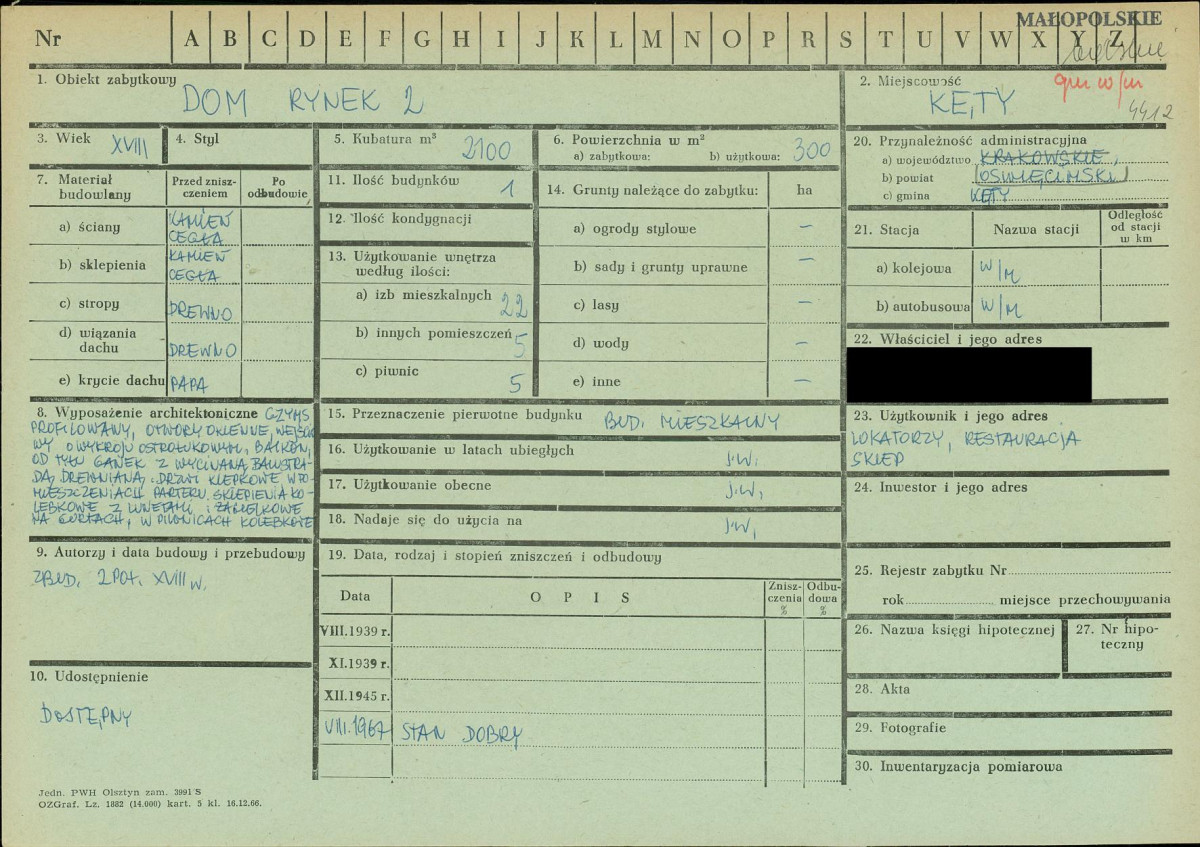 MAŁOPOLSKIE
Nr A B C D E F G H I J K L M N O P R S T U V W X Y Z
gm w/m
4412
1. Obiekt zabytkowy
DOM RYNEK 2
2. Miejscowość
KĘTY
3. Wiek XVIII
4. Styl
5. Kubatura m³ 2100
6. Powierzchnia w m²
a) zabytkowa: b) użytkowa: 300
20. Przynależność administracyjna
a) województwo KRAKOWSKIE,
b) powiat (OŚWIĘCIMSKI)
c) gmina KĘTY
7. Materiał budowlany
Przed zniszczeniem
Po odbudowie
a) ściany KAMIEŃ CEGŁA
b) sklepienia KAMIEŃ CEGŁA
c) stropy DREWNO
d) wiązania dachu DREWNO
e) krycie dachu PAPA
11. Ilość budynków 1
12. Ilość kondygnacji
13. Użytkowanie wnętrza według ilości:
a) izb mieszkalnych 22
b) innych pomieszczeń 5
c) piwnic 5
14. Grunty należące do zabytku: ha
a) ogrody stylowe —
b) sady i grunty uprawne —
c) lasy —
d) wody —
e) inne —
21. Stacja
Nazwa stacji
Odległość od stacji w km
a) kolejowa W/M
b) autobusowa W/M
22. Właściciel i jego adres
8. Wyposażenie architektoniczne GZYMS
PROFILOWANY, OTWORY OKIENNE, WEJŚCIO
WY O WYKROJU OSTROŁUKOWYM, BALKON,
OD TYŁU GANEK Z WYCINANĄ BALUSTRA-
DĄ DREWNIANĄ, DRZWI KLEPKOWE W PO-
MIESZCZENIACH PARTERU SKLEPIENIA KO-
LEBKOWE Z LUNETAMI I ŻAGIELKOWE
NA GURTACH, W PIWNICACH KOLEBKOWE
15. Przeznaczenie pierwotne budynku BUD. MIESZKALNY
16. Użytkowanie w latach ubiegłych J.W.
17. Użytkowanie obecne J.W.
18. Nadaje się do użycia na J.W.
23. Użytkownik i jego adres
LOKATORZY, RESTAURACJA
SKLEP
24. Inwestor i jego adres
9. Autorzy i data budowy i przebudowy
ZBUD. 2 POŁ. XVIII w.
19. Data, rodzaj i stopień zniszczeń i odbudowy
Data
OPIS
Zniszczenia %
Odbudowa %
VIII.1939 r.
XI.1939 r.
XII.1945 r.
VIII.1967 STAN DOBRY
25. Rejestr zabytku Nr
rok miejsce przechowywania
26. Nazwa księgi hipotecznej
27. Nr hipoteczny
28. Akta
29. Fotografie
30. Inwentaryzacja pomiarowa
10. Udostępnienie
DOSTĘPNY
Jedn. PWH Olsztyn zam. 3991 S
OZGraf. Lz. 1882 (14.000) kart. 5 kl. 16.12.66.